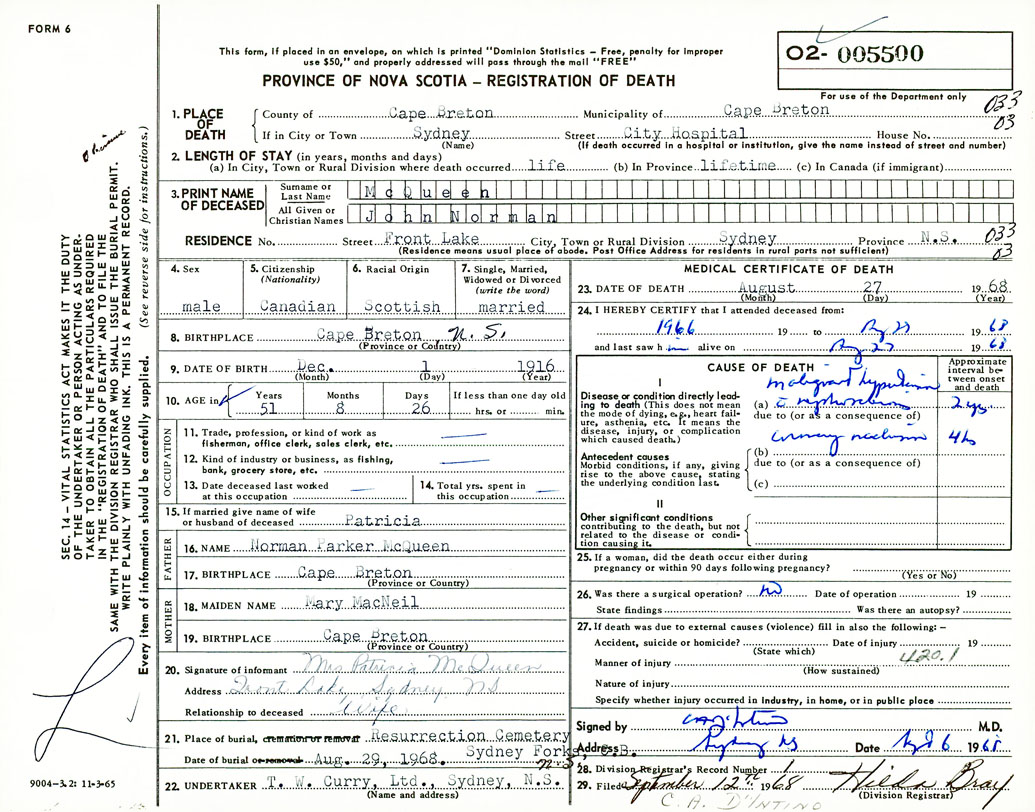 FORM 6
This form, if placed in an envelope, on which is printed "Dominion Statistics – Free, penalty for improper
use $50," and properly addressed will pass through the mail "FREE"
PROVINCE OF NOVA SCOTIA – REGISTRATION OF DEATH
02- 005500
For use of the Department only
033
03
SEC. 14 – VITAL STATISTICS ACT MAKES IT THE DUTY
OF THE UNDERTAKER OR PERSON ACTING AS UNDER-
TAKER TO OBTAIN ALL THE PARTICULARS REQUIRED
IN THE "REGISTRATION OF DEATH" AND TO FILE THE
SAME WITH THE DIVISION REGISTRAR WHO SHALL ISSUE THE BURIAL PERMIT.
WRITE PLAINLY WITH UNFADING INK. THIS IS A PERMANENT RECORD.
Every item of information should be carefully supplied. (See reverse side for instructions.)
1. PLACE OF DEATH
County of Cape Breton Municipality of Cape Breton
If in City or Town Sydney Street City Hospital House No.
(Name) (If death occurred in a hospital or institution, give the name instead of street and number)
2. LENGTH OF STAY (in years, months and days)
(a) In City, Town or Rural Division where death occurred life (b) In Province lifetime (c) In Canada (if immigrant)
3. PRINT NAME OF DECEASED
Surname or Last Name McQueen
All Given or Christian Names John Norman
RESIDENCE No. Street Front Lake City, Town or Rural Division Sydney Province N.S. 033
(Residence means usual place of abode. Post Office Address for residents in rural parts not sufficient) 03
4. Sex
male
5. Citizenship
(Nationality)
Canadian
6. Racial Origin
Scottish
7. Single, Married,
Widowed or Divorced
(write the word)
married
8. BIRTHPLACE Cape Breton N.S.
(Province or Country)
9. DATE OF BIRTH Dec. 1 1916
(Month) (Day) (Year)
10. AGE in
Years Months Days If less than one day old
51 8 26 hrs. or min.
OCCUPATION
11. Trade, profession, or kind of work as
fisherman, office clerk, sales clerk, etc.
12. Kind of industry or business, as fishing,
bank, grocery store, etc.
13. Date deceased last worked
at this occupation
14. Total yrs. spent in
this occupation
15. If married give name of wife
or husband of deceased Patricia
FATHER
16. NAME Norman Parker McQueen
17. BIRTHPLACE Cape Breton
(Province or Country)
MOTHER
18. MAIDEN NAME Mary MacNeil
19. BIRTHPLACE Cape Breton
(Province or Country)
20. Signature of informant Mrs Patricia McQueen
Address Front Lake, Sydney NS
Relationship to deceased Wife
21. Place of burial, cremation or removal Resurrection Cemetery
Sydney Forks, C.B.
Date of burial or removal Aug. 29, 1968. N.S.
22. UNDERTAKER T. W. Curry, Ltd., Sydney, N.S.
(Name and address)
9004-3.2: 11-3-65
MEDICAL CERTIFICATE OF DEATH
23. DATE OF DEATH August 27 1968
(Month) (Day) (Year)
24. I HEREBY CERTIFY that I attended deceased from:
1966 19 to Aug 27 1968
and last saw him alive on Aug 27 1968
CAUSE OF DEATH
Approximate
interval be-
tween onset
and death
I
Disease or condition directly lead-
ing to death (This does not
mean the mode of dying, e.g., heart fail-
ure, asthenia, etc. It means the
disease, injury, or complication
which caused death.)
malignant hypertension
(a) c nephrosclerosis 2 yrs
due to (or as a consequence of)
coronary occlusion 4 hs
Antecedent causes
Morbid conditions, if any, giving
rise to the above cause, stating
the underlying condition last.
(b)
due to (or as a consequence of)
(c)
II
Other significant conditions
contributing to the death, but not
related to the disease or condi-
tion causing it.
25. If a woman, did the death occur either during
pregnancy or within 90 days following pregnancy?
(Yes or No)
26. Was there a surgical operation? no Date of operation 19
State findings Was there an autopsy?
27. If death was due to external causes (violence) fill in also the following: –
Accident, suicide or homicide? Date of injury 19
(State which)
420.1
Manner of injury
(How sustained)
Nature of injury
Specify whether injury occurred in Industry, in home, or in public place
Signed by M.D.
Address Sydney NS Date Sept 6 1968
28. Division Registrar's Record Number
29. Filed September 12th 1968 Hilda Bray
(Division Registrar)
C. A. D'INTINO